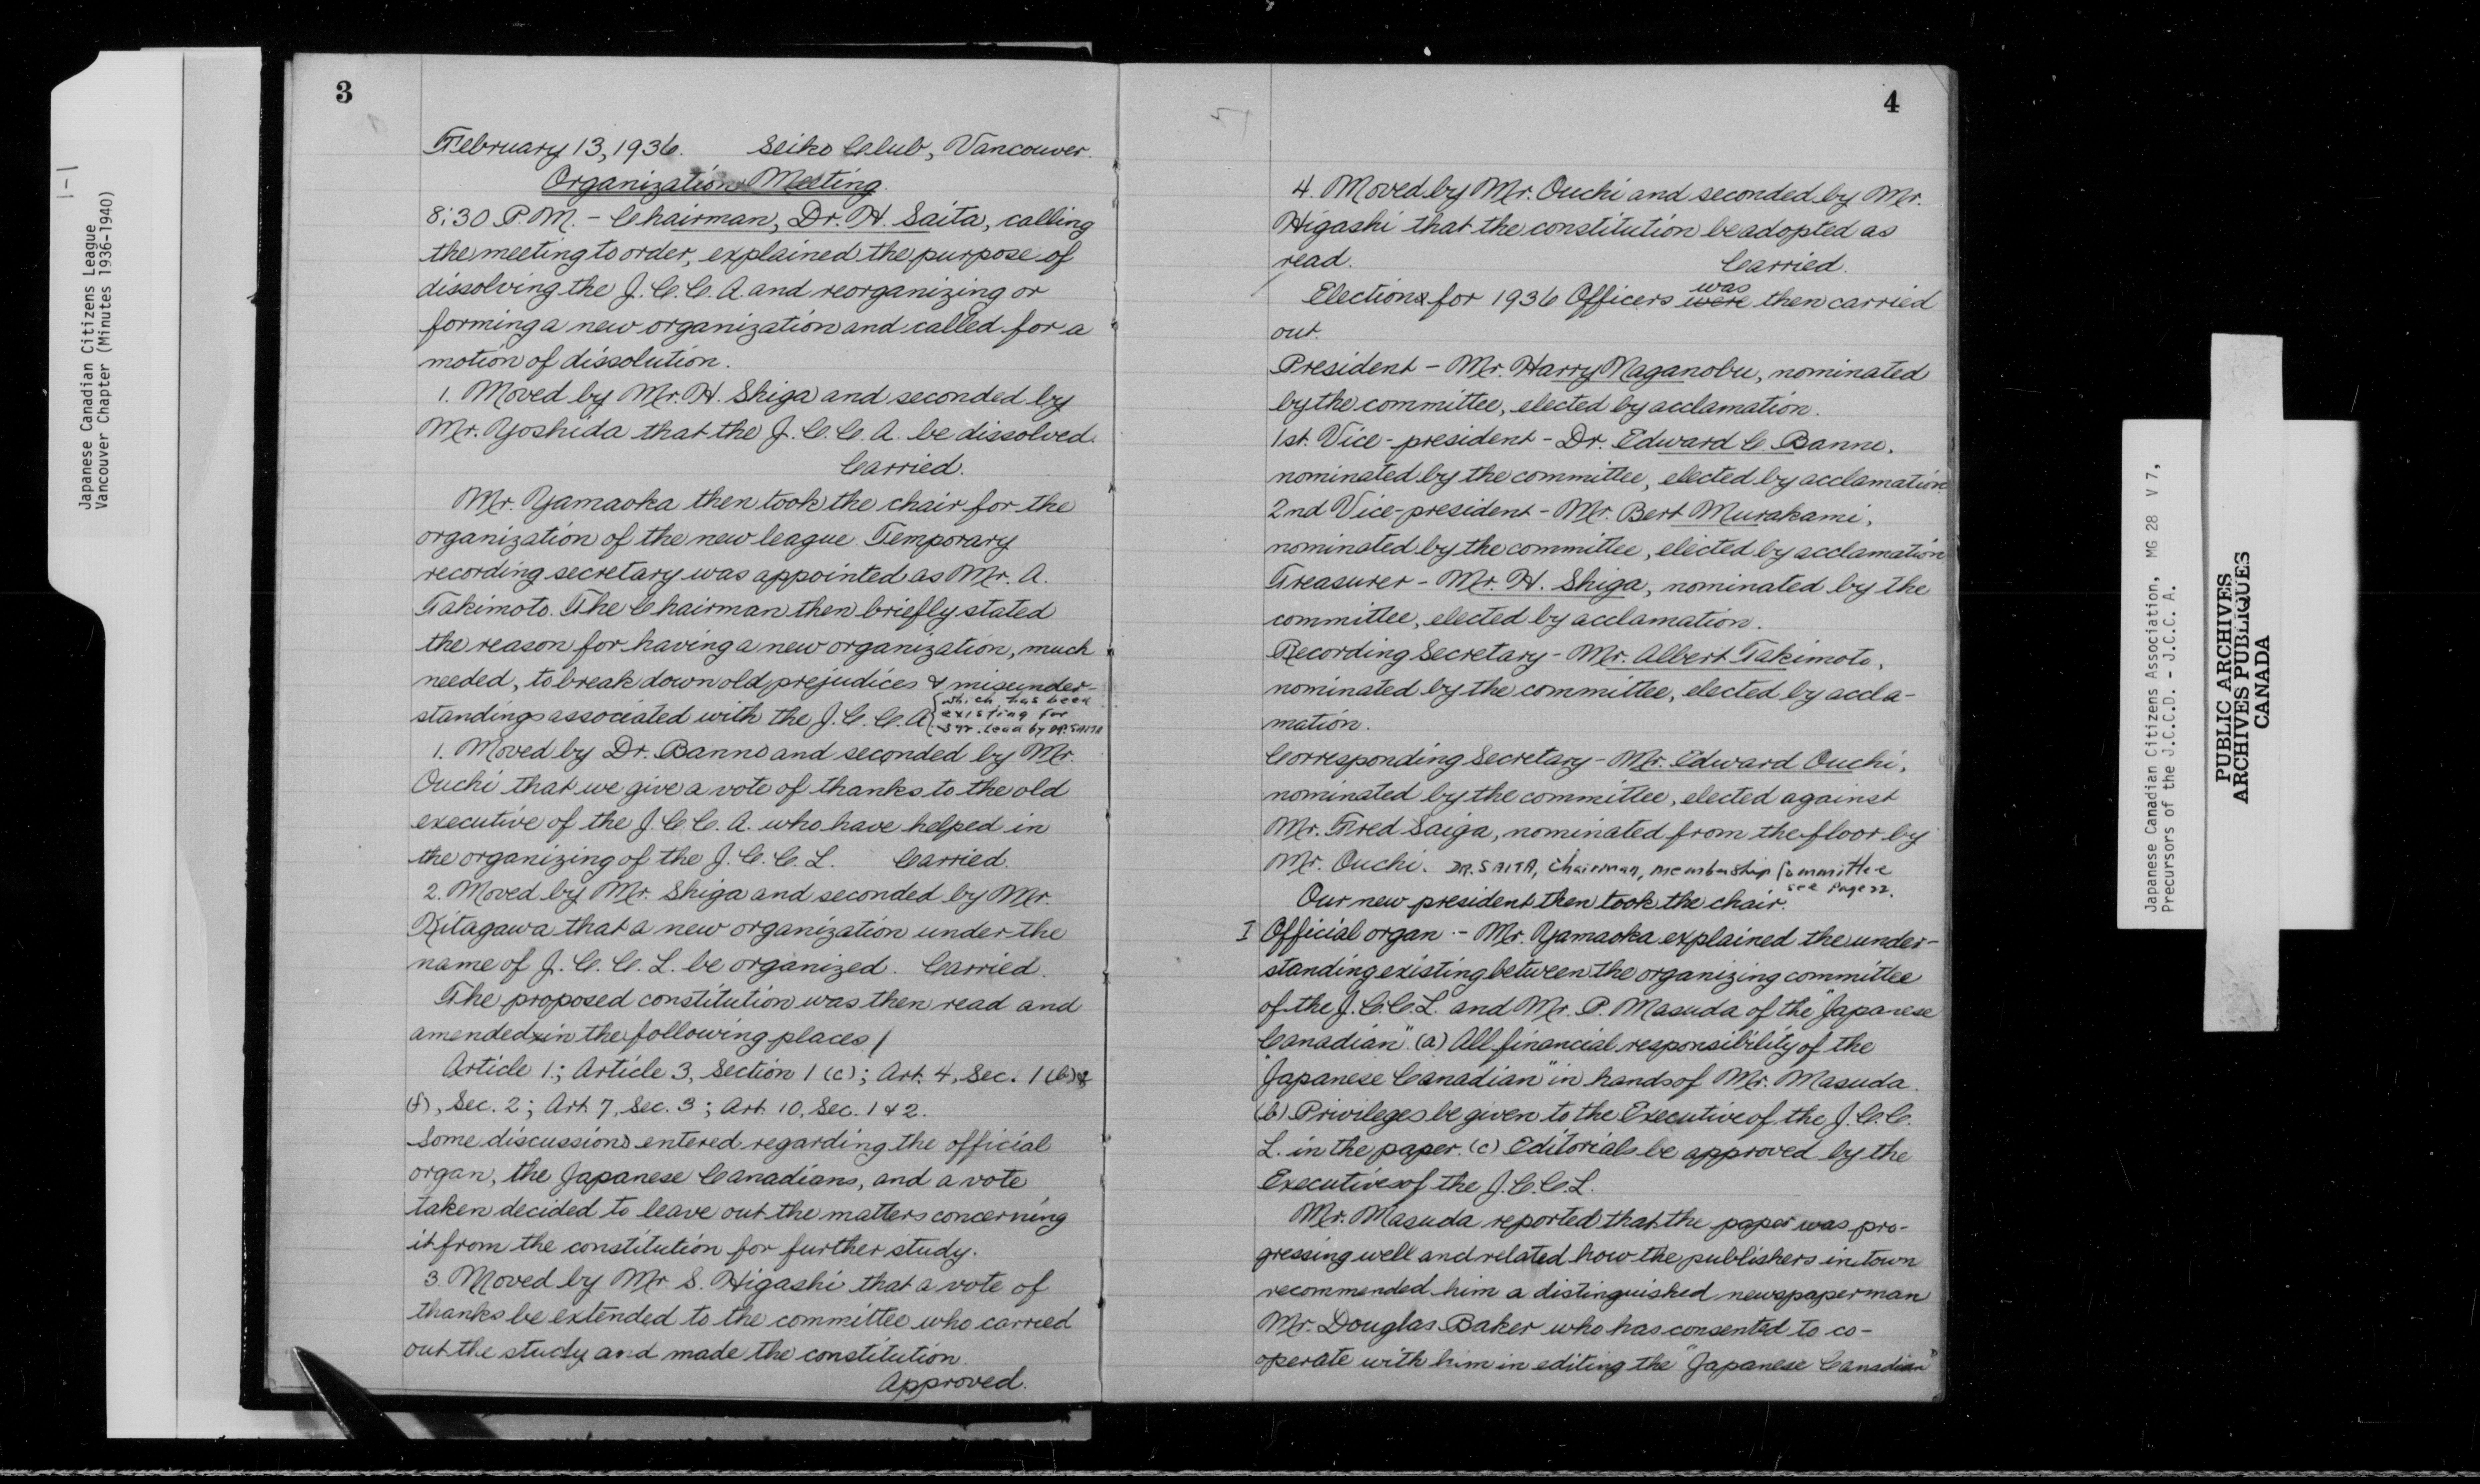 1-1
Japanese Canadian Citizens League
Vancouver Chapter (Minutes 1936-1940)
3
February 13, 1936. Seiko Club, Vancouver.
Organization Meeting.
8:30 P.M. - Chairman, Dr. H. Saita, calling
the meeting to order, explained the purpose of
dissolving the J.C.C.A. and reorganizing or
forming a new organization and called for a
motion of dissolution.
1. Moved by Mr. H. Shiga and seconded by
Mr. Yoshida that the J.C.C.A. be dissolved.
Carried.
Mr. Yamaoka then took the chair for the
organization of the new league. Temporary
recording secretary was appointed as Mr. A.
Takimoto. The Chairman then briefly stated
the reason for having a new organization, much
needed, to break down old prejudices & misunder-
standings associated with the J.C.C.A.
which has been
existing for
3 yr. lead by DR. SAITA
1. Moved by Dr. Banno and seconded by Mr.
Ouchi that we give a vote of thanks to the old
executive of the J.C.C.A. who have helped in
the organizing of the J.C.C.L. Carried.
2. Moved by Mr. Shiga and seconded by Mr.
Kitagawa that a new organization under the
name of J.C.C.L. be organized. Carried.
The proposed constitution was then read and
amended in the following places /
Article 1; Article 3, Section 1 (c); Art. 4, Sec. 1 (b) &
(f), Sec. 2; Art. 7, Sec. 3; Art. 10, Sec. 1 & 2.
Some discussions entered regarding the official
organ, the Japanese Canadians, and a vote
taken decided to leave out the matters concerning
it from the constitution for further study.
3. Moved by Mr S. Higashi that a vote of
thanks be extended to the committee who carried
out the study and made the constitution.
Approved.
4
4. Moved by Mr. Ouchi and seconded by Mr.
Higashi that the constitution be adopted as
read. Carried.
Election for 1936 Officers were was then carried
out.
President - Mr. Harry Naganobu, nominated
by the committee, elected by acclamation.
1st. Vice-president - Dr. Edward C. Banno,
nominated by the committee, elected by acclamation
2nd Vice-president - Mr. Bert Murakami,
nominated by the committee, elected by acclamation
Treasurer - Mr. H. Shiga, nominated by the
committee, elected by acclamation.
Recording Secretary - Mr. Albert Takimoto,
nominated by the committee, elected by accla-
mation.
Corresponding Secretary - Mr. Edward Ouchi,
nominated by the committee, elected against
Mr. Fred Saiga, nominated from the floor by
Mr. Ouchi. DR. SAITA, Chairman, Membership Committee
see Page 22.
Our new president then took the chair.
I Official organ - Mr. Yamaoka explained the under-
standing existing between the organizing committee
of the J.C.C.L. and Mr. P. Masuda of the "Japanese
Canadian". (a) All financial responsibility of the
"Japanese Canadian" in hands of Mr. Masuda.
(b) Privileges be given to the Executive of the J.C.C.
L. in the paper. (c) Editorials be approved by the
Executives of the J.C.C.L.
Mr. Masuda reported that the paper was pro-
gressing well and related how the publishers in town
recommended him a distinguished newspaperman
Mr. Douglas Baker who has consented to co-
operate with him in editing the "Japanese Canadian"
Japanese Canadian Citizens Association, MG 28 V 7,
Precursors of the J.C.C.D. - J.C.C. A.
PUBLIC ARCHIVES
ARCHIVES PUBLIQUES
CANADA